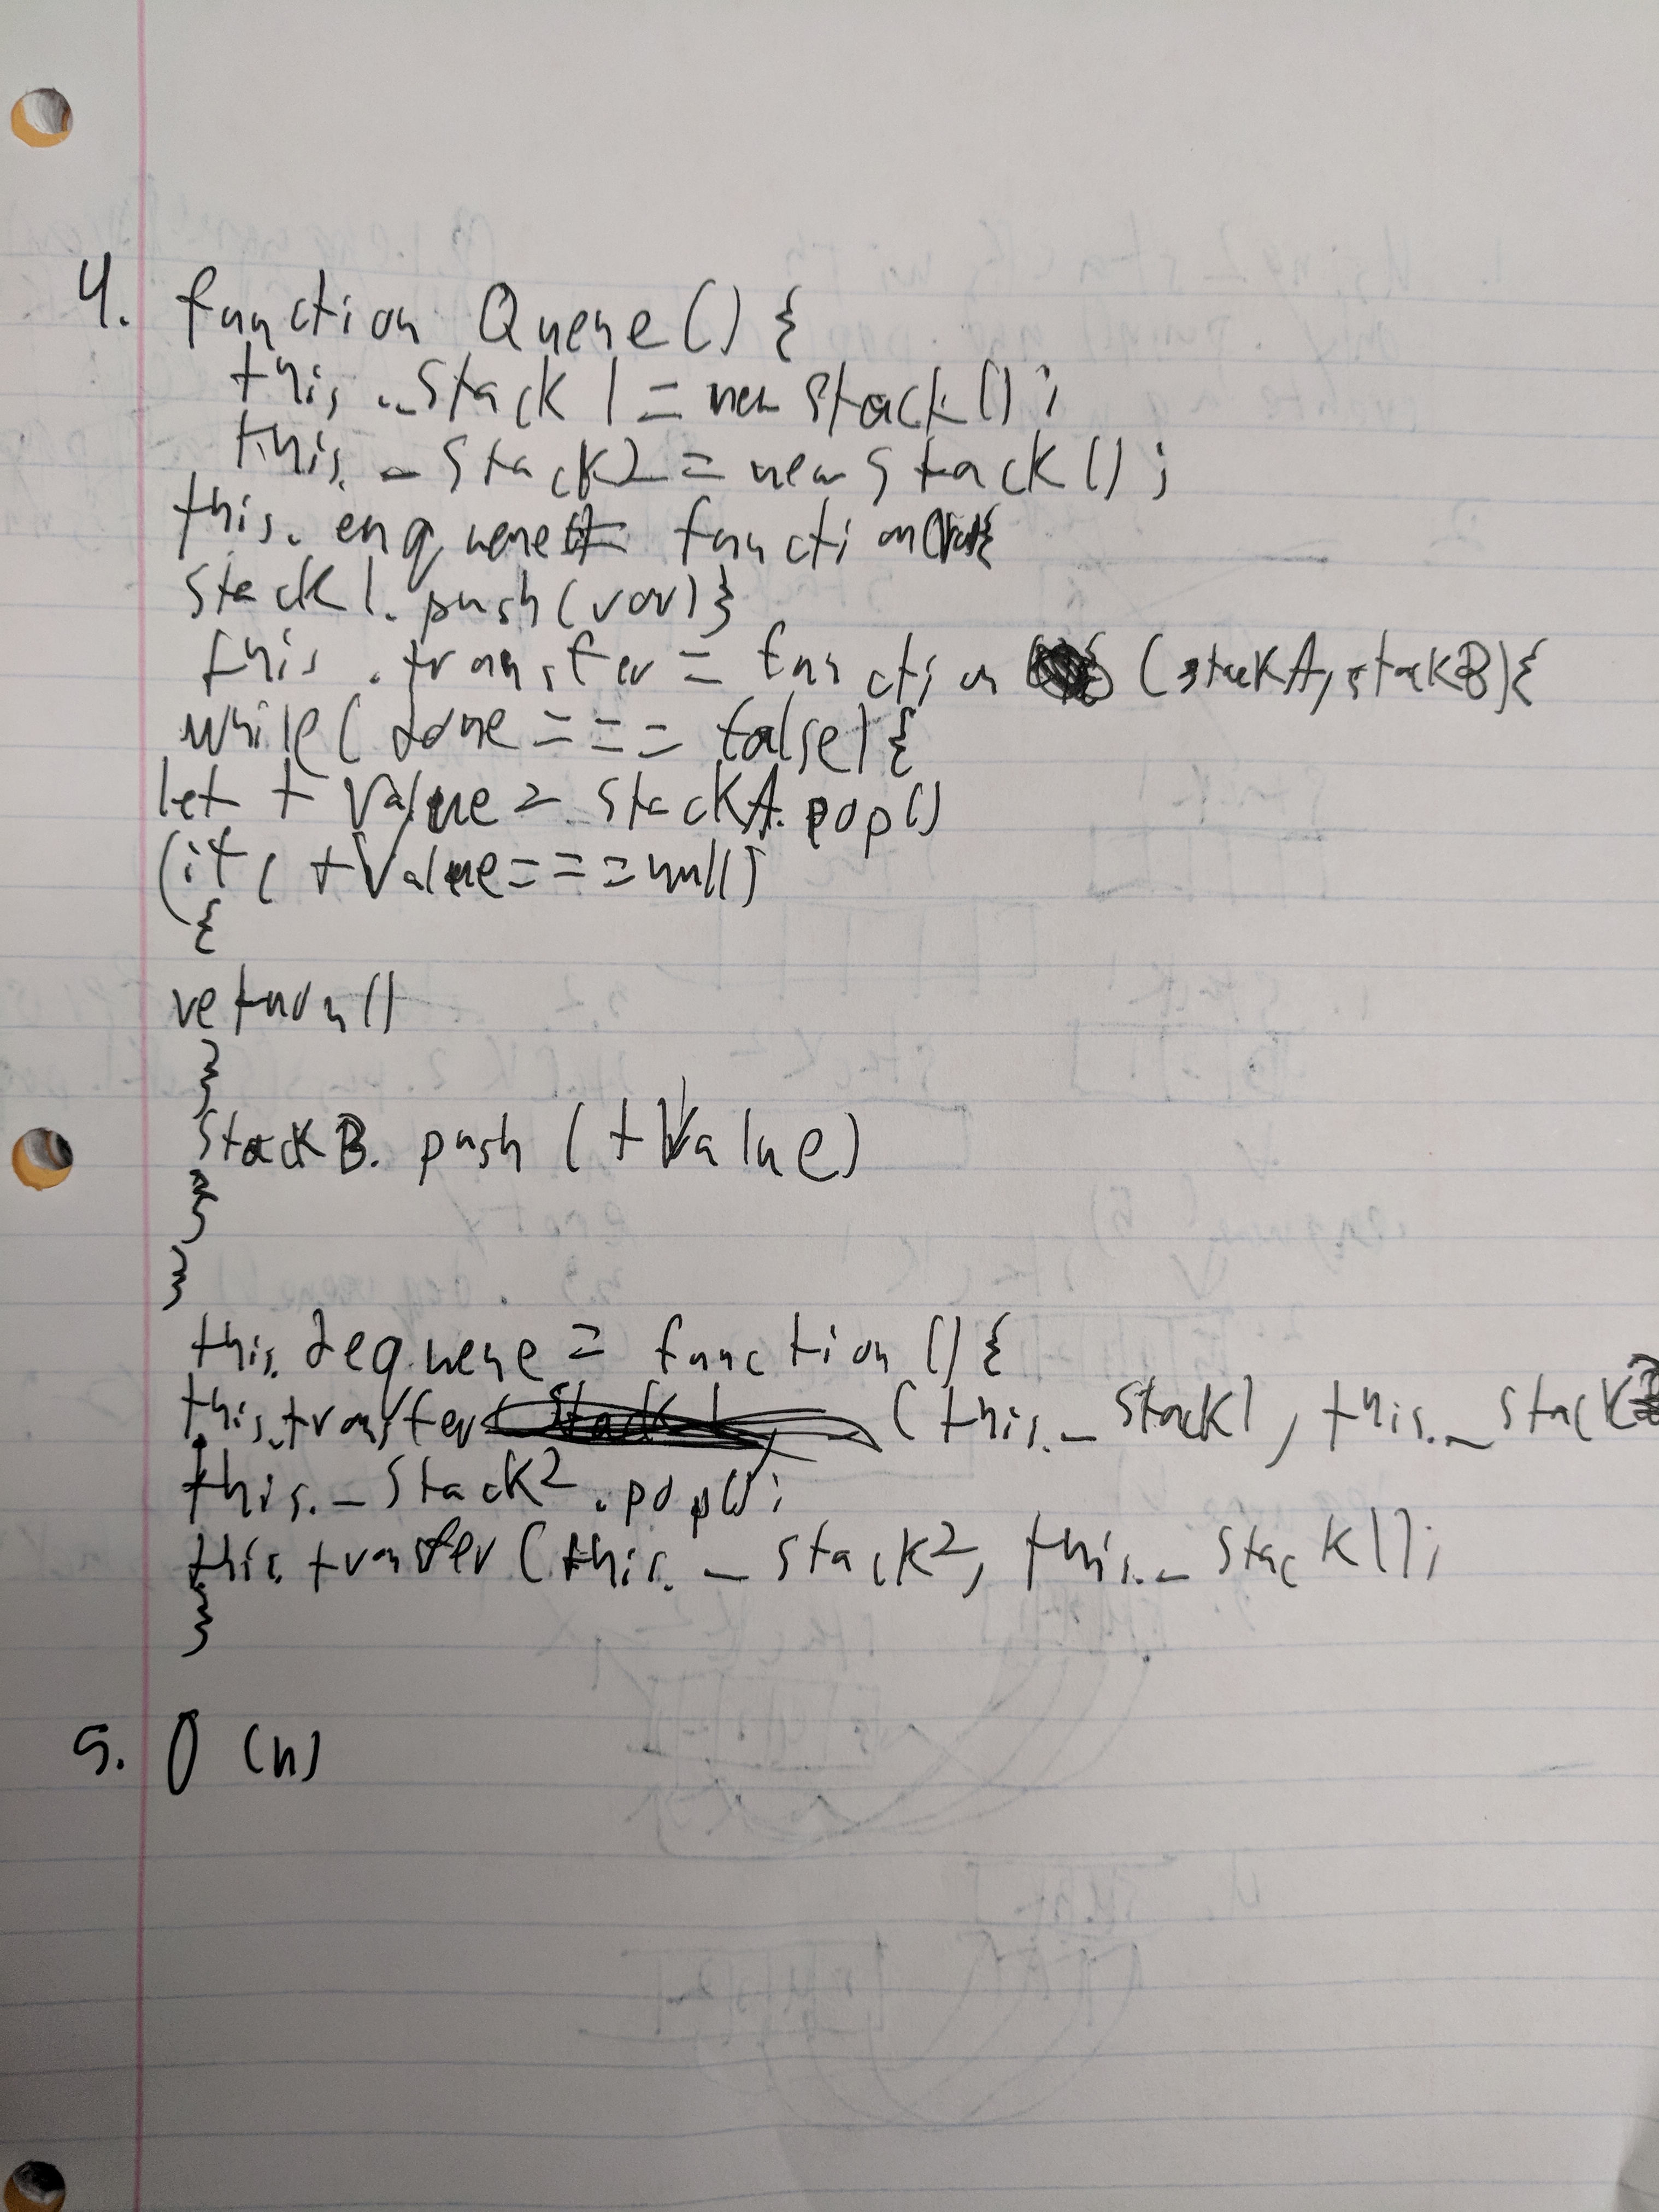 4. function Queue() {
this._stack1 = new stack();
this._stack2 = new stack();
this.enqueue = function(var){
stack1.push(var)}
this.transfer = function (stackA, stackB){
while(done === false){
let tValue = stackA.pop()
(if( tValue === null)
{
retunull
}
stackB.push(tValue)
}
}
this.dequeue = function(){
this.transfer (this._stack1, this._stack2
this._stack2.pop();
this.transfer(this._stack2, this._stack1);
}
5. O(n)